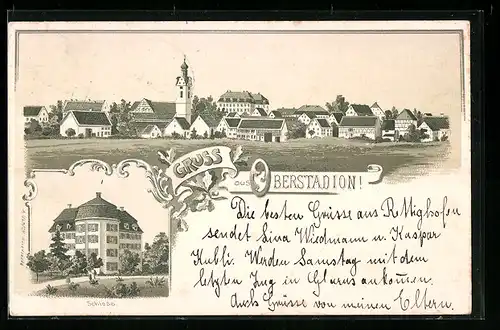 GRUSS
aus OBERSTADION!
Schloss.
Die besten Grüsse aus Rettighofen
sendet Sina Wiedmann u. Kaspar
Kubli. Werden Samstag mit dem
letzten Zug in Glarus ankom̄en.
Auch Grüsse von meinen Eltern.